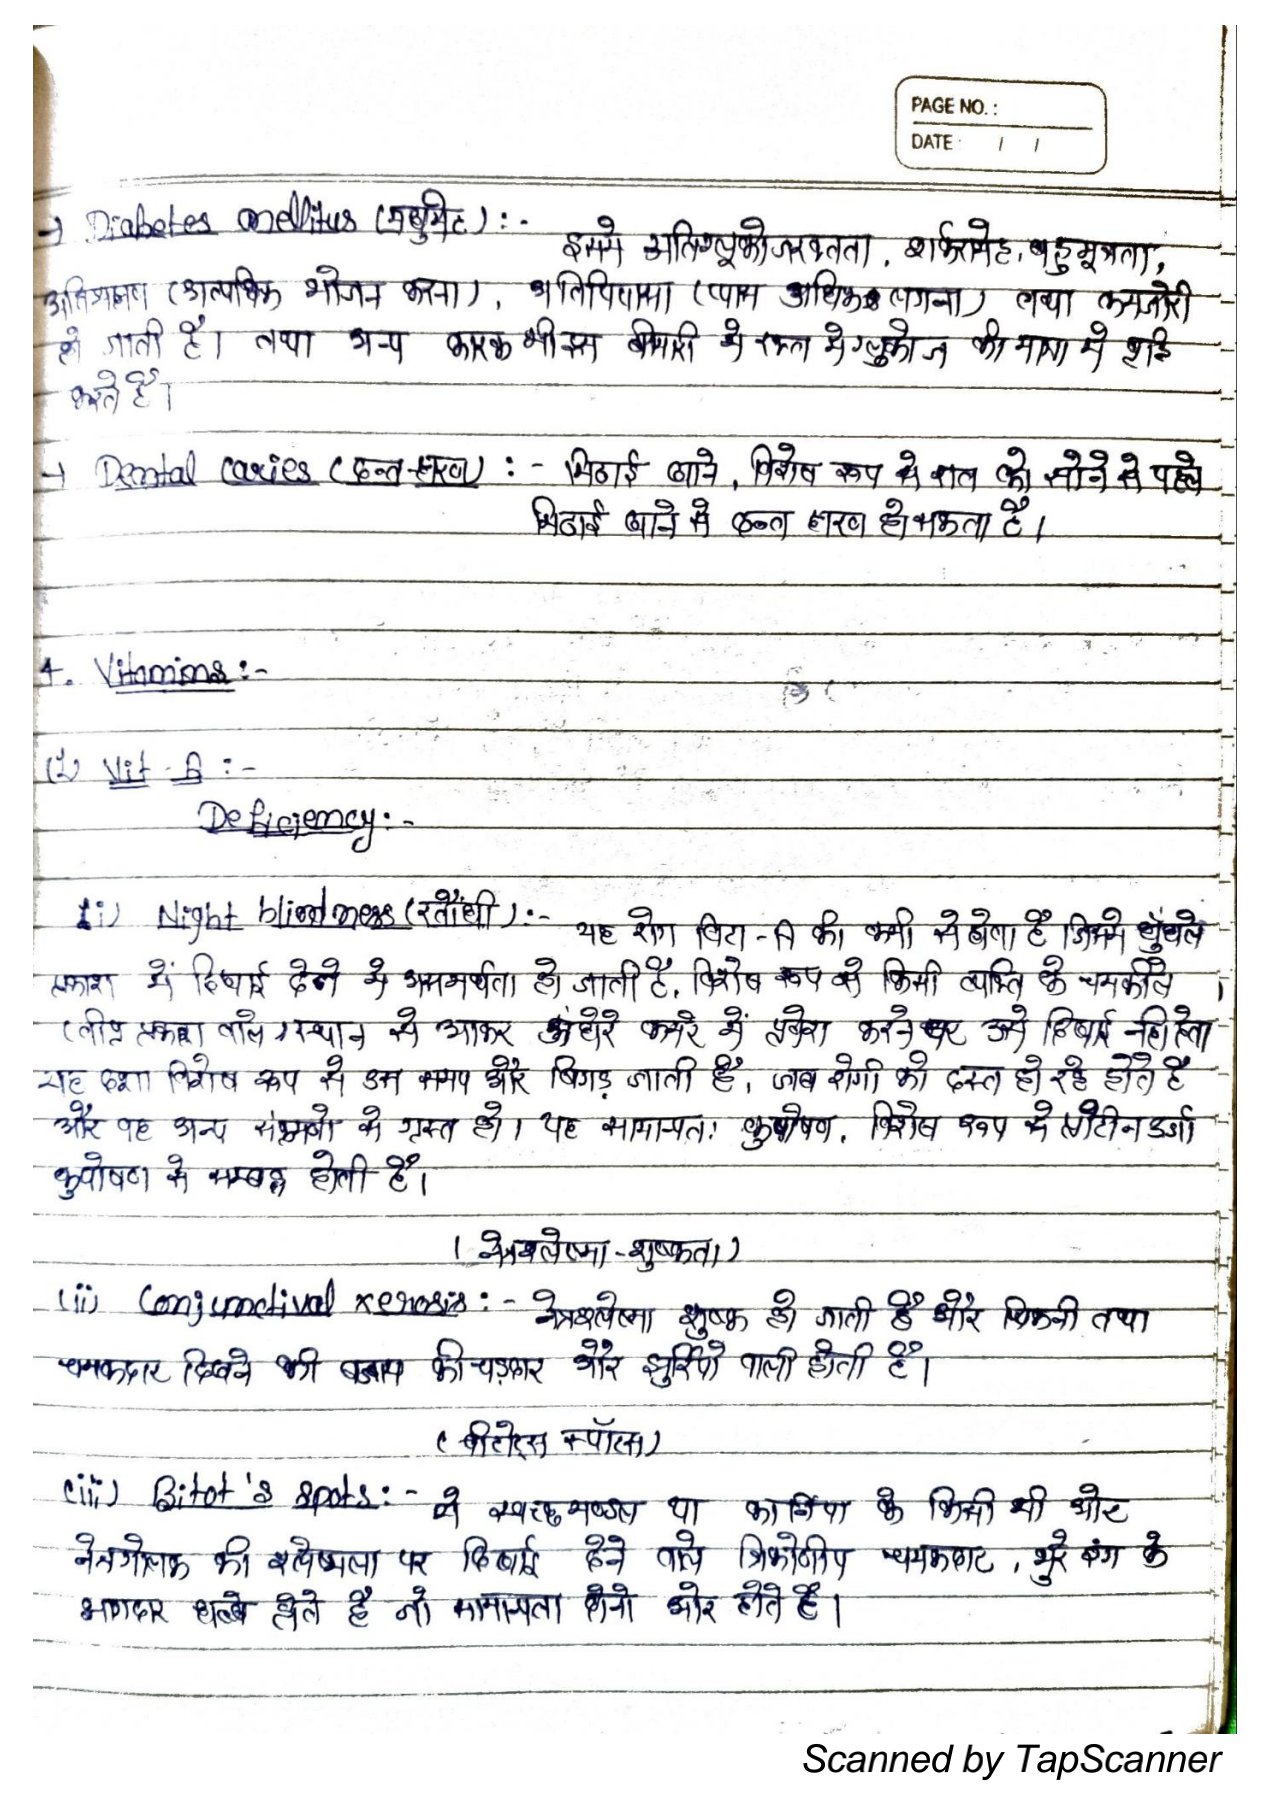 PAGE NO.:
DATE / /
→ Diabetes mellitus (मधुमेह) :-
इसमें अतिग्लूकोजरक्तता, शर्करामेह, बहुमूत्रता,
अतिभक्षण (अत्यधिक भोजन करना), अतिपिपासा (प्यास अधिक लगना) तथा कमजोरी
हो जाती है। तथा अन्य कारक भी इस बीमारी में रक्त में ग्लुकोज की मात्रा में वृद्धि
करते हैं।
→ Dental caries (दन्त-क्षरण) :- मिठाई खाने, विशेष रूप से रात को सोने से पहले
मिठाई खाने से दन्त क्षरण हो सकता है।
4. Vitamins :-
Vit - A :-
Deficiency :-
(i) Night blindness (रतौंधी) :- यह रोग विटा-A की कमी से होता है जिसमें धुँधले
प्रकाश में दिखाई देने में असमर्थता हो जाती है, विशेष रूप से किसी व्यक्ति के चमकीले
(तीव्र प्रकाश वाले) स्थान से आकर अंधेरे कमरे में प्रवेश करने पर उसे दिखाई नहीं देता
यह दशा विशेष रूप से उस समय और बिगड़ जाती है, जब रोगी को दस्त हो रहे होते है
और वह अन्य संक्रमणों से ग्रस्त हो। यह सामान्यतः कुपोषण, विशेष रूप से प्रोटीन उर्जा
कुपोषण से सम्बद्ध होती है।
(नेत्रश्लेष्मा-शुष्कता)
(ii) Conjunctival xerosis :- नेत्रश्लेष्मा शुष्क हो जाती है और चिकनी तथा
चमकदार दिखने की बजाय कीचड़दार और झुर्रियों वाली होती है।
(बीटोट्स स्पॉटस)
(iii) Bitot's spots :- ये स्वच्छमण्डल या कार्निया के किसी भी ओर
नेत्रगोलक की श्लेष्मला पर दिखाई देने वाले त्रिकोणीय चमकदार, भुरे रंग के
झागदार धब्बे होते है जो सामान्यता दोनो ओर होते है।
Scanned by TapScanner